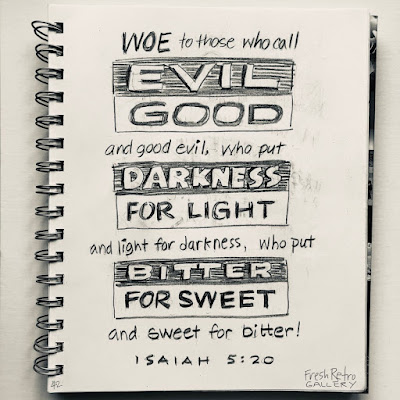 WOE to those who call
EVIL
GOOD
and good evil, who put
DARKNESS
FOR LIGHT
and light for darkness, who put
BITTER
FOR SWEET
and sweet for bitter!
ISAIAH 5:20
42
Fresh Retro
GALLERY